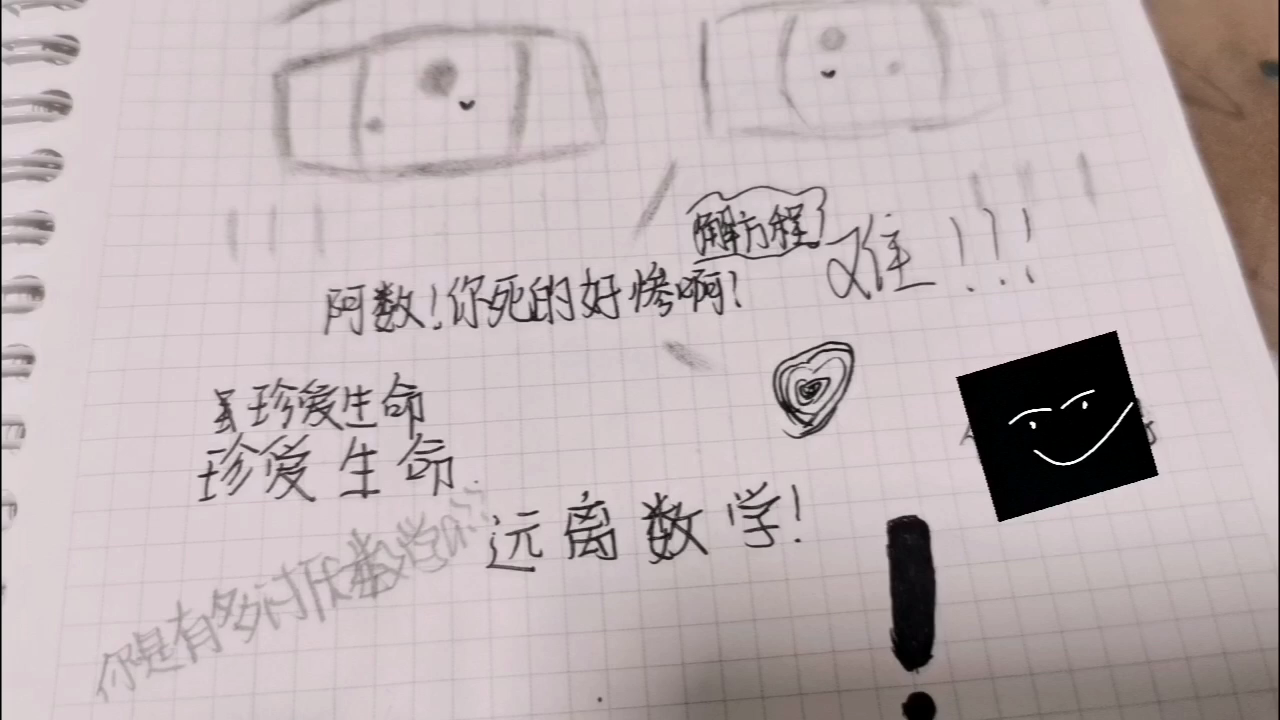 解方程
难!!!
阿数!你死的好惨啊!
珍爱生命
珍爱生命.
远离数学!
你是有多讨厌数学